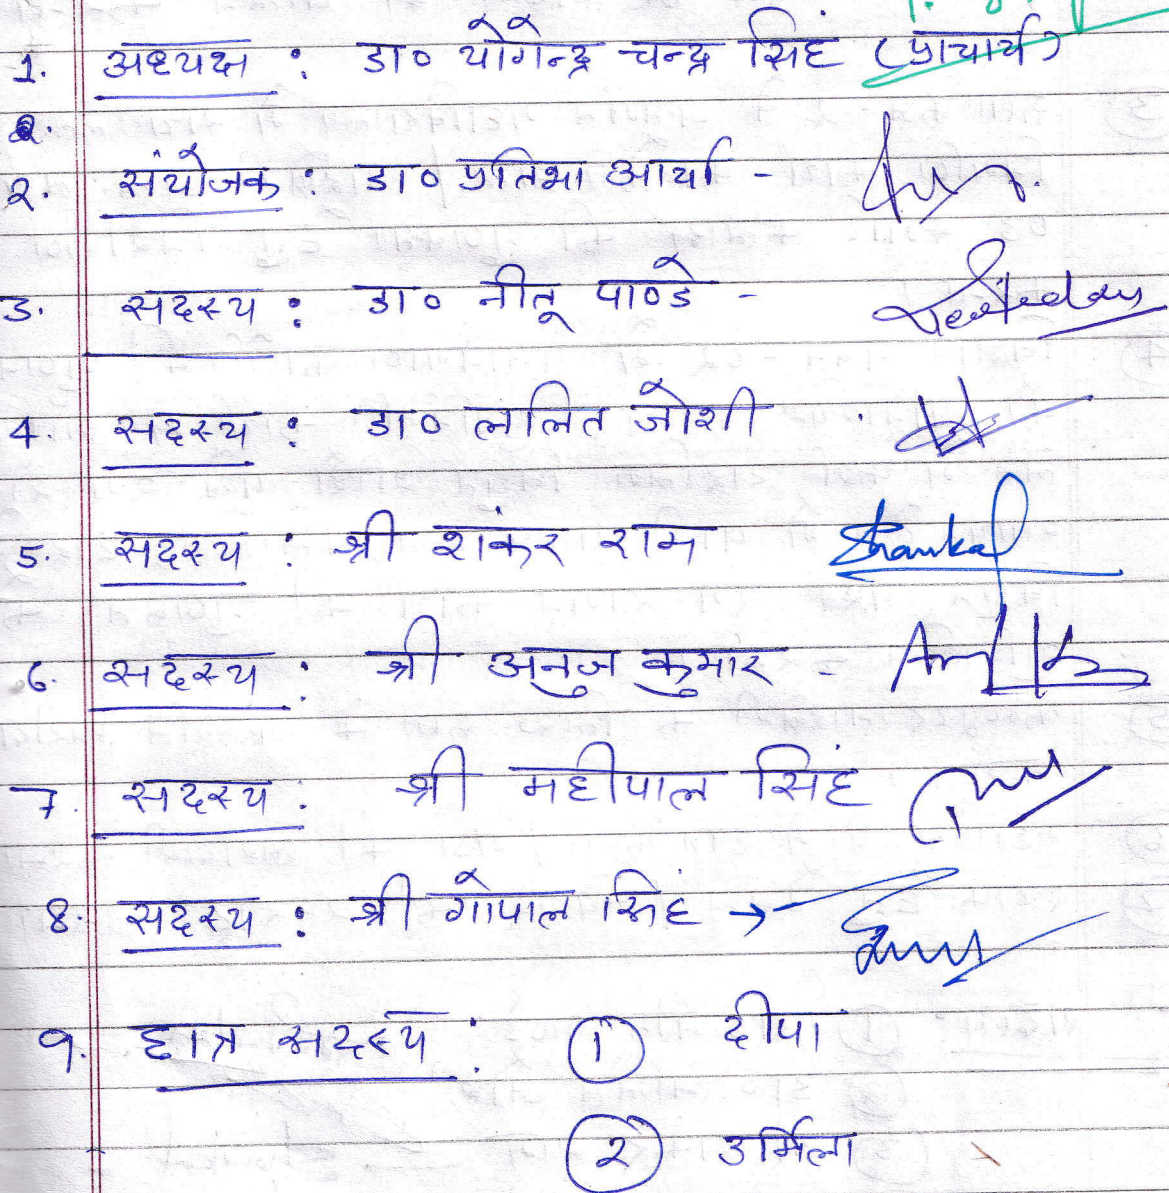 1. अध्यक्ष : डा० योगेन्द्र चन्द्र सिंह (प्राचार्य)
2.
२. संयोजक : डा० प्रतिभा आर्या -
3. सदस्य : डा० नीतू पाण्डे -
4. सदस्य : डा० ललित जोशी
5. सदस्य : श्री शंकर राम Shankar
6. सदस्य : श्री अनुज कुमार -
7. सदस्य : श्री महीपाल सिंह
8. सदस्य : श्री गोपाल सिंह →
9. छात्र सदस्य : 1 दीपा
2 उर्मिला